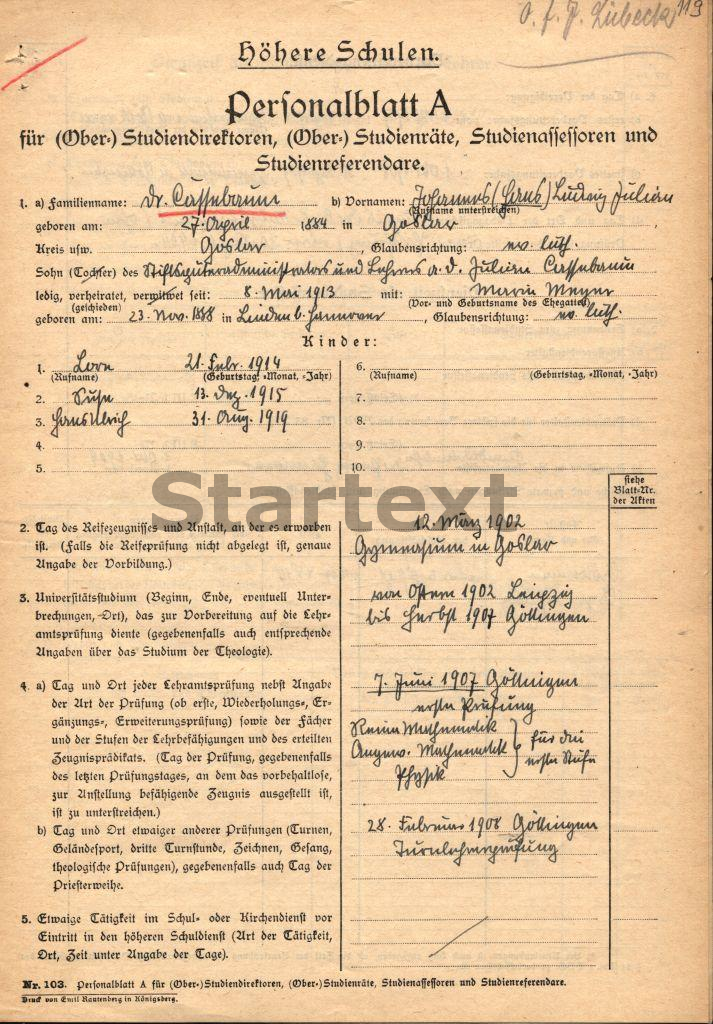 O. f. J. Lübeck 119
Höhere Schulen.
Personalblatt A
für (Ober-) Studiendirektoren, (Ober-) Studienräte, Studienassessoren und
Studienreferendare.
1. a) Familienname: Dr. Cassebaum b) Vornamen: Johannes (Hans) Ludwig Julian
(Rufname unterstreichen)
geboren am: 27. April 1884 in Goslar
Kreis usw. Goslar, Glaubensrichtung: ev. luth.
Sohn (Tochter) des Stiftsgüteradministrators und Lehrers a. d. Julian Cassebaum
ledig, verheiratet, verwitwet seit: 8. Mai 1913 mit: Marie Meyer
(geschieden) (Vor- und Geburtsname des Ehegatten)
geboren am: 23. Nov. 1888 in Linden b. Hannover, Glaubensrichtung: ev. luth.
Kinder:
1. Lore 21. Febr. 1914
(Rufname) (Geburtstag, -Monat, -Jahr)
2. Suse 13. Dez. 1915
3. Hans Ulrich 31. Aug. 1919
4.
5.
6.
(Rufname) (Geburtstag, -Monat, -Jahr)
7.
8.
9.
10.
siehe
Blatt-Nr.
der Akten
Startext
2. Tag des Reifezeugnisses und Anstalt, an der es erworben
ist. (Falls die Reifeprüfung nicht abgelegt ist, genaue
Angabe der Vorbildung.)
12. März 1902
Gymnasium in Goslar
3. Universitätsstudium (Beginn, Ende, eventuell Unter-
brechungen, Ort), das zur Vorbereitung auf die Lehr-
amtsprüfung diente (gegebenenfalls auch entsprechende
Angaben über das Studium der Theologie).
von Ostern 1902 Leipzig
bis Herbst 1907 Göttingen
4. a) Tag und Ort jeder Lehramtsprüfung nebst Angabe
der Art der Prüfung (ob erste, Wiederholungs-, Er-
gänzungs-, Erweiterungsprüfung) sowie der Fächer
und der Stufen der Lehrbefähigungen und des erteilten
Zeugnisprädikats. (Tag der Prüfung, gegebenenfalls
des letzten Prüfungstages, an dem das vorbehaltlose,
zur Anstellung befähigende Zeugnis ausgestellt ist,
ist zu unterstreichen.)
7. Juni 1907 Göttingen
erste Prüfung
Reine Mathematik
Angew. Mathematik
Physik
für die
erste Stufe
b) Tag und Ort etwaiger anderer Prüfungen (Turnen,
Geländesport, dritte Turnstunde, Zeichnen, Gesang,
theologische Prüfungen), gegebenenfalls auch Tag der
Priesterweihe.
28. Februar 1908 Göttingen
Turnlehrerprüfung
5. Etwaige Tätigkeit im Schul- oder Kirchendienst vor
Eintritt in den höheren Schuldienst (Art der Tätigkeit,
Ort, Zeit unter Angabe der Tage).
Nr. 103. Personalblatt A für (Ober-)Studiendirektoren, (Ober-)Studienräte, Studienassessoren und Studienreferendare.
Druck von Emil Rautenberg in Königsberg.